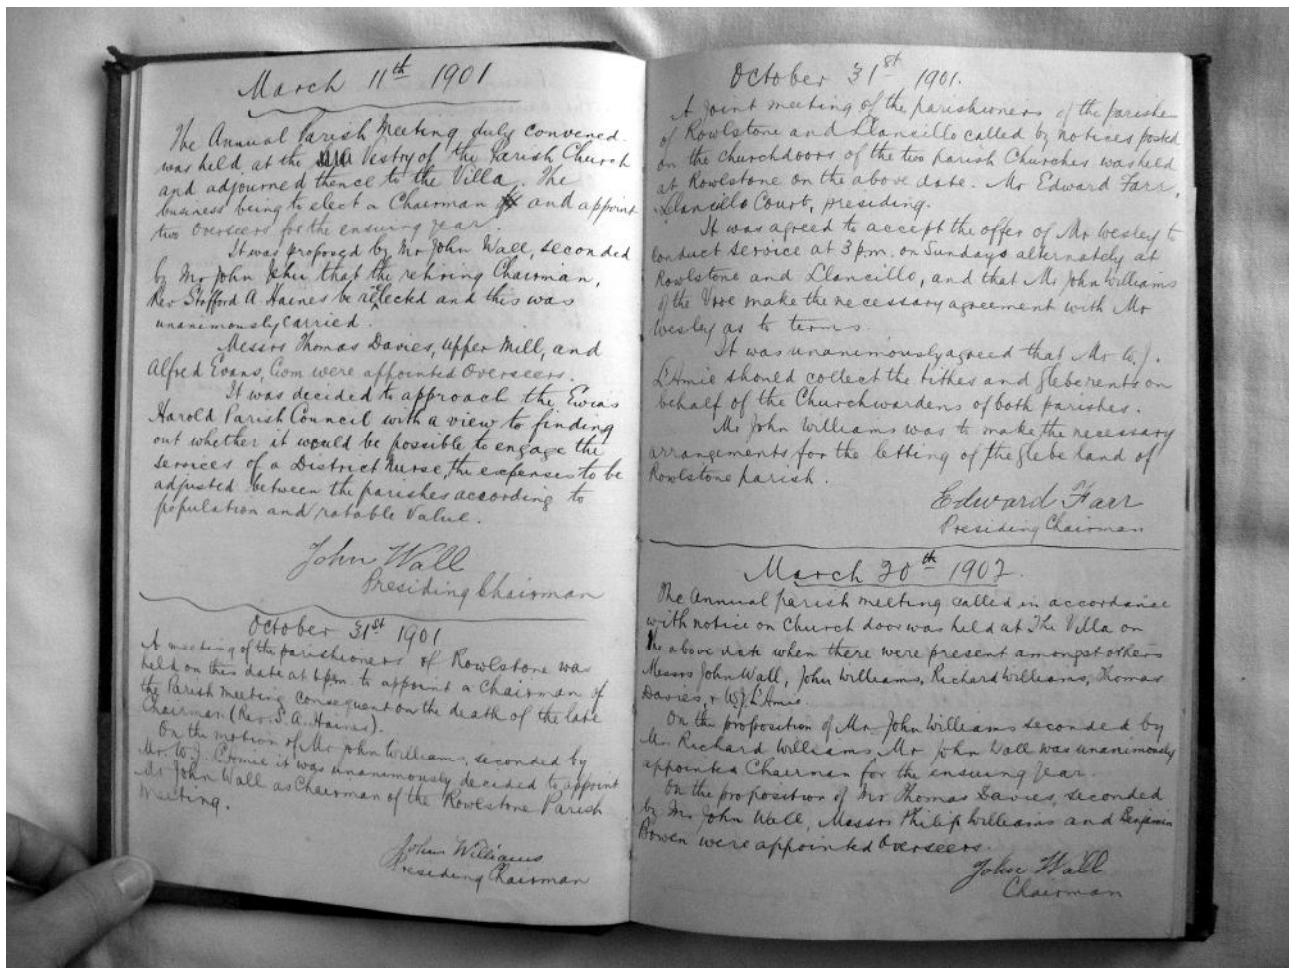 March 11th 1901
The Annual Parish Meeting duly convened
was held at the Vestry of the Parish Church
and adjourned thence to the Villa. The
business being to elect a Chairman and appoint
two Overseers for the ensuing year.
It was proposed by Mr John Wall, seconded
by Mr John that the retiring Chairman,
Rev Stafford A. Haines be relected and this was
unanimously carried.
Messrs Thomas Davies, Upper Mill, and
Alfred Evans, were appointed Overseers.
It was decided to approach the Ewias
Harold Parish Council with a view to finding
out whether it would be possible to engage the
services of a District Nurse, the expenses to be
adjusted between the parishes according to
population and ratable value.
John Wall
Presiding Chairman
October 31st 1901
A meeting of the parishioners of Rowlstone was
held on this date at 6pm. to appoint a Chairman of
the Parish Meeting consequent on the death of the late
Chairman (Rev. S. A. Haines).
On the motion of Mr John Williams, seconded by
Mr. W. J. L'Amie it was unanimously decided to appoint
Mr John Wall as Chairman of the Rowlstone Parish
Meeting.
John Williams
Presiding Chairman
October 31st 1901.
A Joint meeting of the parishioners of the parishes
of Rowlstone and Llancillo called by notices posted
on the church doors of the two parish Churches was held
at Rowlstone on the above date. Mr Edward Farr,
Llancillo Court, presiding.
It was agreed to accept the offer of Mr Wesley to
conduct service at 3 p.m. on Sundays alternately at
Rowlstone and Llancillo, and that Mr John Williams
of the make the necessary agreement with Mr
Wesley as to terms.
It was unanimously agreed that Mr W. J.
L'Amie should collect the tithes and glebe rents on
behalf of the Churchwardens of both parishes.
Mr John Williams was to make the necessary
arrangements for the letting of the glebe land of
Rowlstone parish.
Edward Farr
Presiding Chairman
March 20th 1902.
The Annual parish meeting called in accordance
with notice on Church door was held at The Villa on
the above date when there were present amongst others
Messrs John Wall, John Williams, Richard Williams, Thomas
Davies, & W. J. L'Amie.
On the proposition of Mr John Williams seconded by
Mr Richard Williams, Mr John Wall was unanimously
appointed Chairman for the ensuing Year.
On the proposition of Mr Thomas Davies, seconded
by Mr John Wall, Messrs Philip Williams and Benjamin
Bowen were appointed Overseers.
John Wall
Chairman